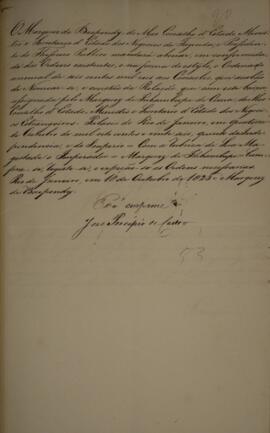 O Marquez de Baependy, do Meu Conselho d'Estado, Minis-
tro e Secretario d'Estado dos Negocios da Fazenda, e Presidente
do Thesouro Publico mandará abonar, em conformidade
das Ordens existentes, e na forma do estylo, o Ordenado
annual de seis centos mil reis aos
de Nomear da Relação que com esta baixa
assignada pelo Marquez de Inhambupe de Cima, do Meu
Conselho d'Estado, Ministro e Secretario d'Estado dos Negoci-
os Estrangeiros. Palacio do Rio de Janeiro, em
de Outubro de mil oito centos e vinte seis, quinto da Inde-
pendencia, e do Imperio = Com a Rubrica de Sua Ma-
gestade o Imperador = Marquez de Inhambupe = Cum-
pra-se, registe-se, e expeção-se as Ordens necessarias
Rio de Janeiro, em 10 de Outubro de = Marquez
de Baependy
Está conforme
José de Castro
53